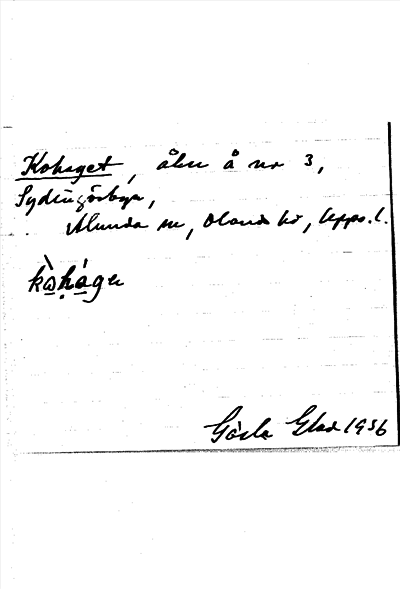 Kohaget, åker å nr 3,
Sydingörbyn,
Alunda sn, Olands hd, Upps. l.
kòhága
Gösta Elad 1936